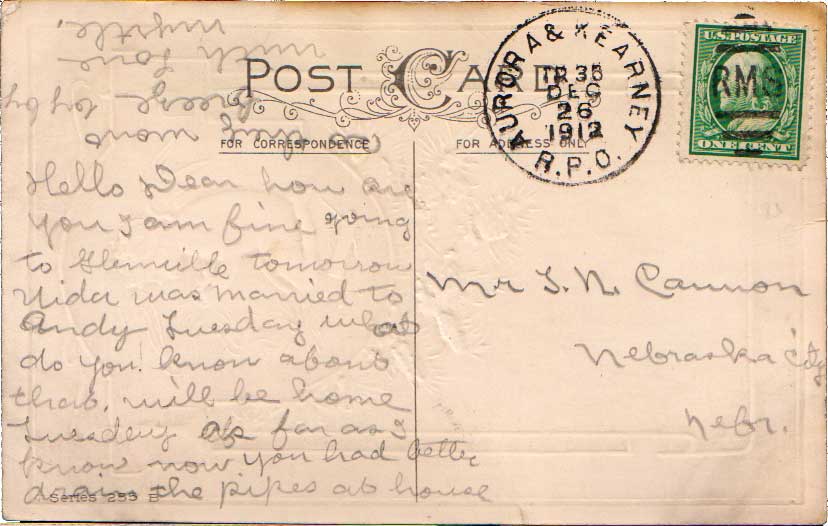 POST CARD
FOR CORRESPONDENCE
FOR ADDRESS ONLY
AURORA & KEARNEY
TR 35
DEC
26
1912
R.P.O.
U.S. POSTAGE
RMS
ONE CENT
Hello Dear how are
you I am fine going
to Glenville tomorrow
Vida was married to
Andy Tuesday what
do you know about
that. will be home
Tuesday as far as I
know now you had better
drain the pipes at house
so they wont
freeze by by
with love
myrtle.
Mr T. N. Cannon
Nebraska City
Nebr.
Series 255 E